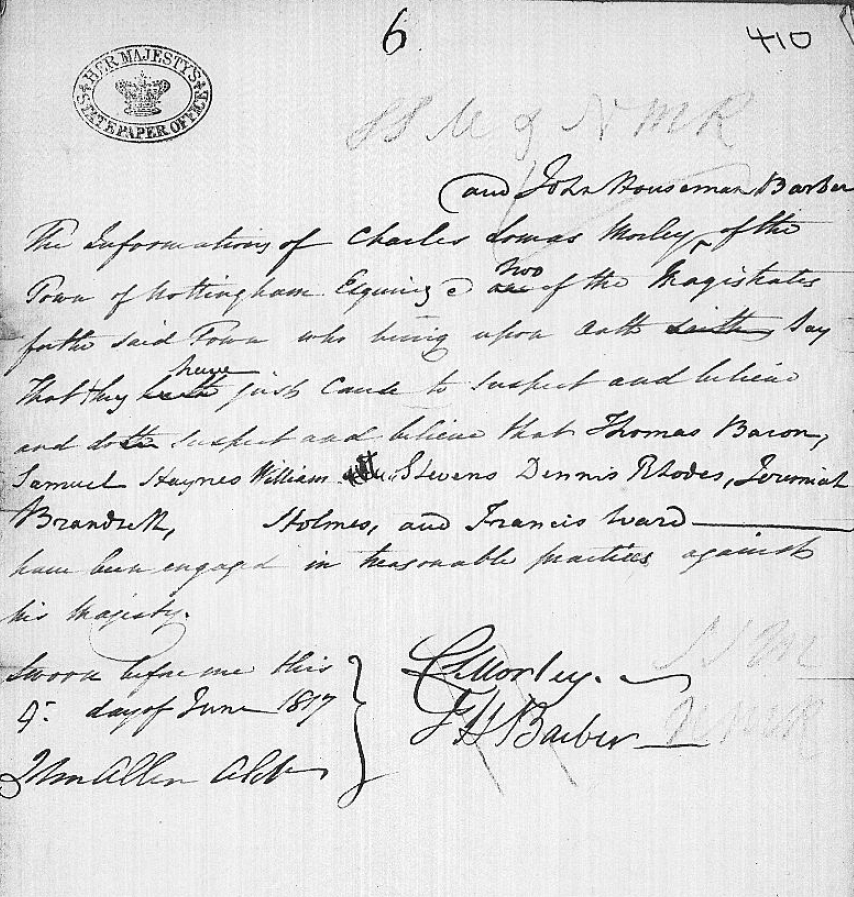 6
410
HER MAJESTY'S
STATE PAPER OFFICE
and John Houseman Barber
The Informations of Charles Lomas Morley ^ of the
Town of Nottingham Esquires two one of the Magistrates
for the said Town who being upon Oath saith say
That they hath have just Cause to suspect and believe
and doth suspect and believe that Thomas Bacon,
Samuel Haynes William Stevens Dennis Rhodes, Jeremiah
Brandreth, Holmes, and Francis Ward
have been engaged in treasonable practices against
his Majesty.
Sworn before me this
day of June 1817
C L Morley.
J H Barber